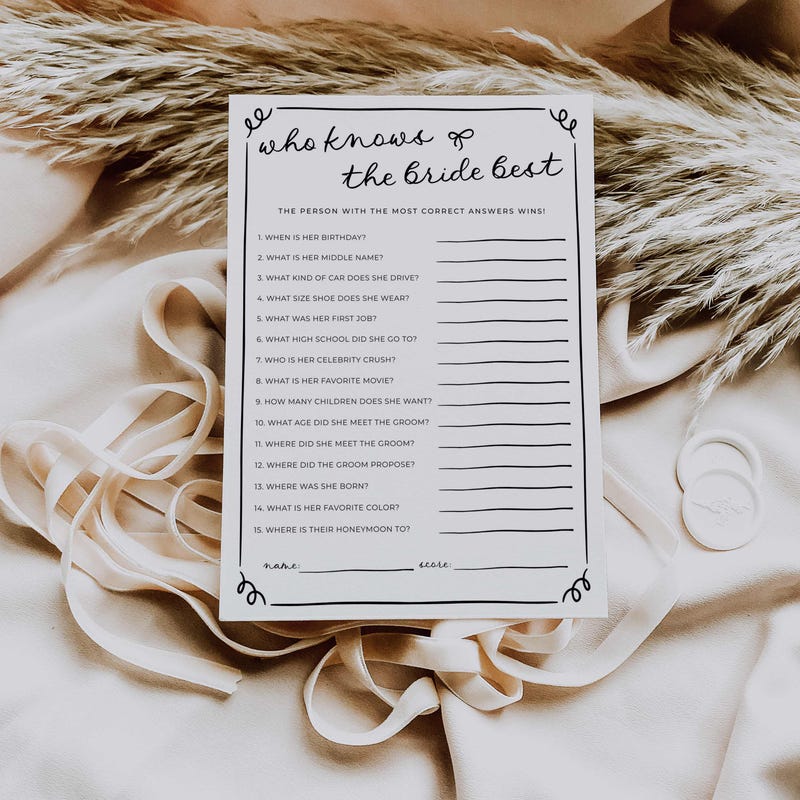 who knows
the bride best
THE PERSON WITH THE MOST CORRECT ANSWERS WINS!
1. WHEN IS HER BIRTHDAY?
2. WHAT IS HER MIDDLE NAME?
3. WHAT KIND OF CAR DOES SHE DRIVE?
4. WHAT SIZE SHOE DOES SHE WEAR?
5. WHAT WAS HER FIRST JOB?
6. WHAT HIGH SCHOOL DID SHE GO TO?
7. WHO IS HER CELEBRITY CRUSH?
8. WHAT IS HER FAVORITE MOVIE?
9. HOW MANY CHILDREN DOES SHE WANT?
10. WHAT AGE DID SHE MEET THE GROOM?
11. WHERE DID SHE MEET THE GROOM?
12. WHERE DID THE GROOM PROPOSE?
13. WHERE WAS SHE BORN?
14. WHAT IS HER FAVORITE COLOR?
15. WHERE IS THEIR HONEYMOON TO?
name: score: